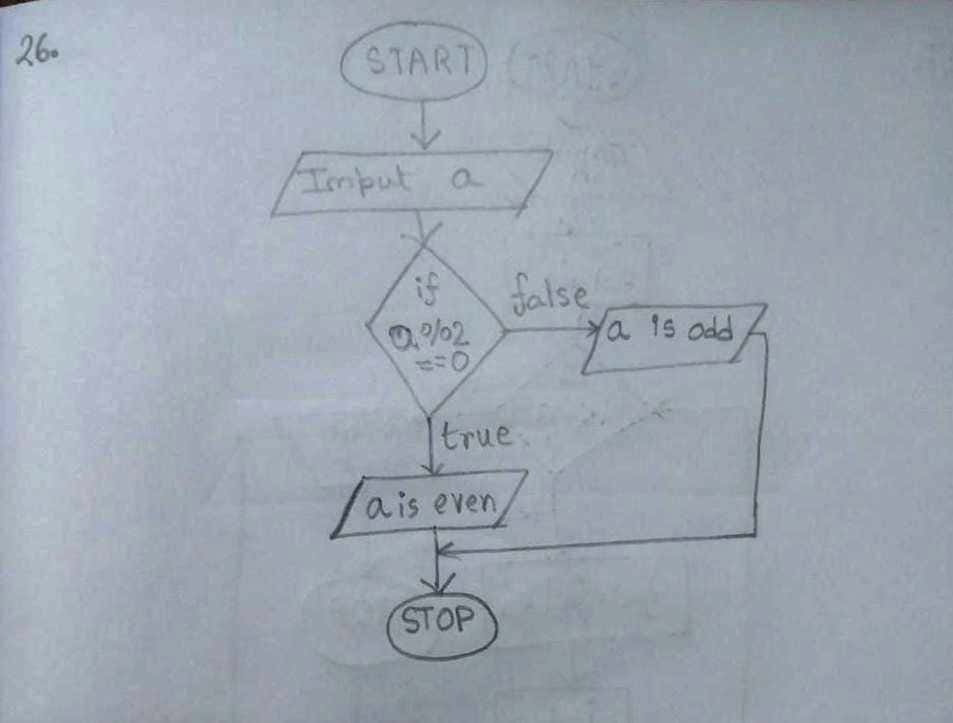 26.
START
Input a
if
a%2
==0
false
a is odd
true
a is even
STOP